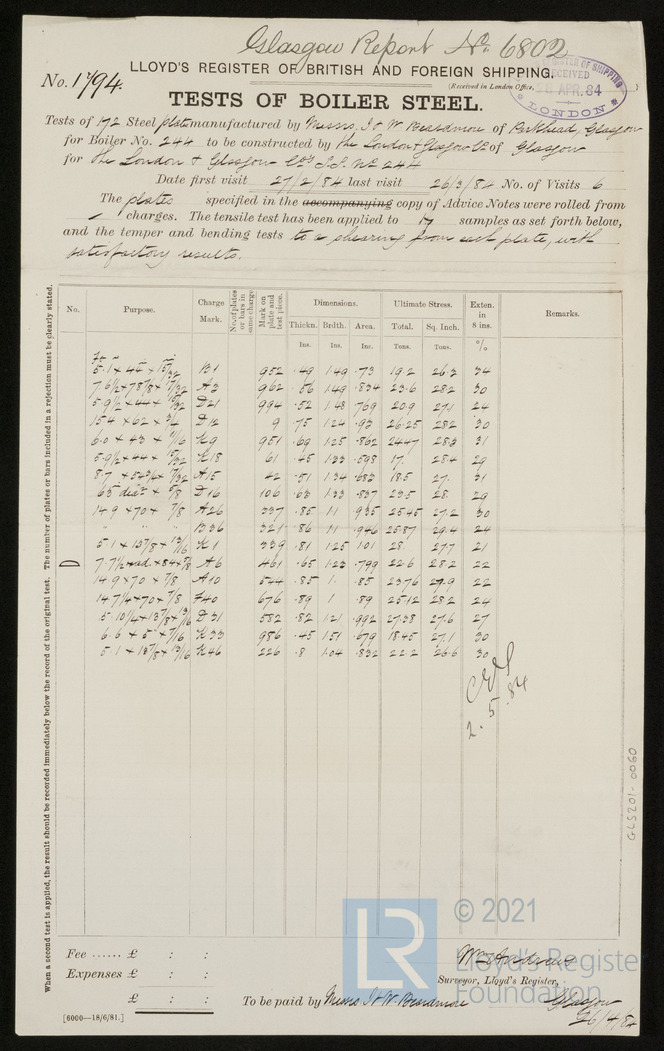 Glasgow Report No. 6802
LLOYD'S REGISTER OF BRITISH AND FOREIGN SHIPPING.
No. 1794.
(Received in London Office,
REGISTER OF SHIPPING
RECEIVED
APR. 84
LONDON
TESTS OF BOILER STEEL.
Tests of 172 Steel plates manufactured by Messrs. J & W Beardmore of Parkhead, Glasgow
for Boiler No. 244 to be constructed by the London & Glasgow Co of Glasgow
for the London & Glasgow Coys S.S. No 244
Date first visit 27/2/84 last visit 26/3/84 No. of Visits 6
The plates specified in the accompanying copy of Advice Notes were rolled from
charges. The tensile test has been applied to 17 samples as set forth below,
and the temper and bending tests to a shearing from each plate, with
satisfactory results.
When a second test is applied, the result should be recorded immediately below the record of the original test. The number of plates or bars included in a rejection must be clearly stated.
No. Purpose. Charge Mark. No. of plates or bars in same charge Mark on plate and test piece. Dimensions. Ultimate Stress. Exten. in 8 ins. Remarks.
Thickn. Brdth. Area. Total. Sq. Inch.
Ins. Ins. Ins. Tons. Tons. %
5.1 × 44 × 15/32 B1 952 .49 1.49 .73 19.2 26.3 34
A3 962 .56 1.49 .834 23.6 28.2 30
5.9 1/2 × 44 × 15/32 D21 994 .52 1.48 .769 20.9 27.1 24
15.4 × 62 × 3/4 D12 9 .75 1.24 .93 26.25 28.2 30
6.0 × 43 × 11/16 K9 951 .69 1.25 .862 24.47 28.3 31
5.9 1/2 × 44 × 15/32 K18 61 .45 1.33 .598 17. 28.4 29
A15 42 .51 1.34 .683 18.5 27. 31
63 dia × 5/8 D16 106 .63 1.33 .837 23.5 28. 29
14.9 × 70 × 7/8 A26 337 .85 1.1 .935 25.45 27.2 30
" " " B36 321 .86 1.1 .946 25.87 29.4 24
5.1 × 13 7/8 × 13/16 K1 339 .81 1.25 1.01 28. 27.7 21
A6 461 .65 1.23 .799 22.6 28.2 22
14.9 × 70 × 7/8 A10 544 .85 1. .85 23.76 27.9 22
14.7 1/4 × 70 × 7/8 F40 676 .89 1. .89 25.12 28.2 24
5.10 1/4 × 13 7/8 × 13/16 D31 582 .82 1.21 .992 27.38 27.6 27
6.6 × 5 × 7/16 K33 986 .45 1.51 .679 18.45 27.1 30
5.1 × 13 7/8 × 13/16 K46 226 .8 1.04 .832 22.2 26.6 30
2.5.84
GLS201-0060
Fee ...... £ : :
Expenses £ : :
£ : :
Wm Andrews
Surveyor, Lloyd's Register,
To be paid by Messrs J & W Beardmore
Glasgow
26/4/84
[6000—18/6/81.]
LR
© 2021
Lloyd's Register
Foundation